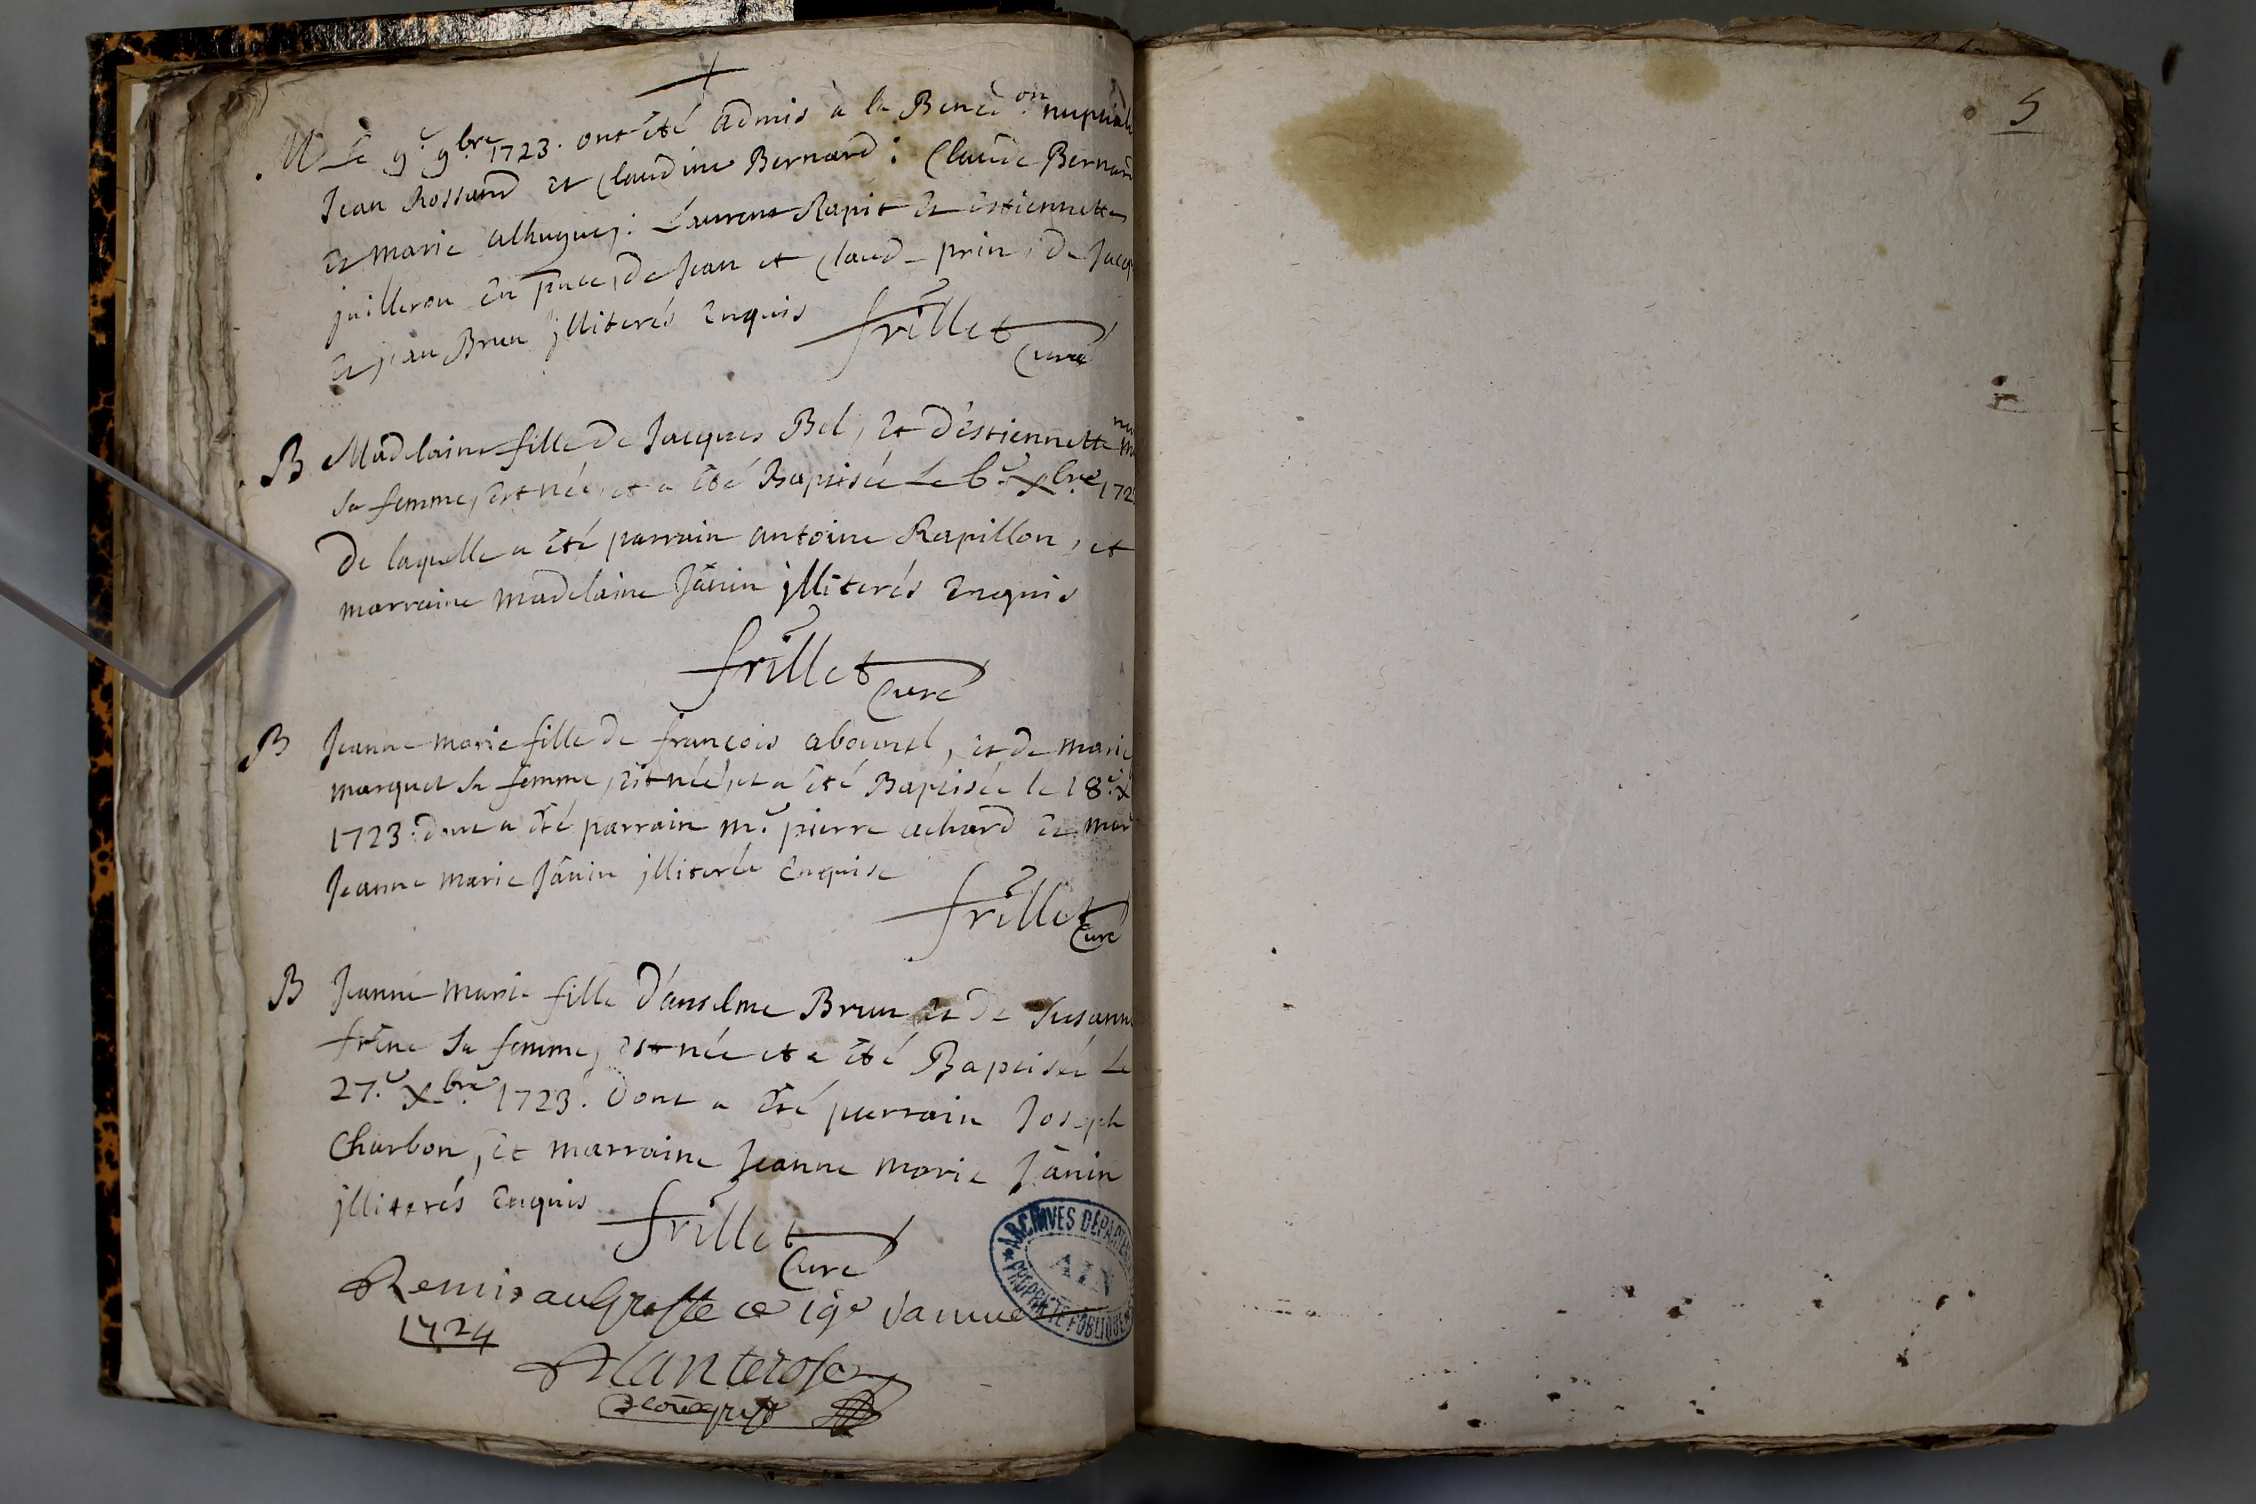 M Le 9e 9bre 1723. ont été admis à la Bened.on nuptiale
Jean Rossand et Claudine Bernard: Claude Bernard
et marie alhugue, Laurent Rapit et estiennette
juilleron en pnce, de Jean et Claud prin, de Jacq
et jean Brun jlliterés enquis frillet
Curé
B Madelaine fille de Jacques Bel, et d'estiennette
sa femme, est née, et a été Baptisée Le 6e xbre 172
De laquelle a été parrain antoine Rapillon, et
marraine madelaine Jânin jlliterés enquis
frillet
Curé
B Jeanne marie fille de françois abounel, et de marie
marquet sa femme, est née, et a été Baptisée le 18e x
1723. dont a été parrain me pierre achard et mar
Jeanne marie Jânin jlliterée enquise
frillet
Curé
B Jeanne marie fille d'anselme Brun et De Susanne
frêne sa femme, est née et a été Baptisée Le
27e xbre 1723. Dont a été parrain Joseph
Charbon, et marraine Jeanne marie Jânin
jlliterés enquis frillet
Curé
Remis au Greffe ce 19e Janvie
1724
ARCHIVES DEPARTE
AIN
PROPRIÉTÉ PUBLIQUE
5